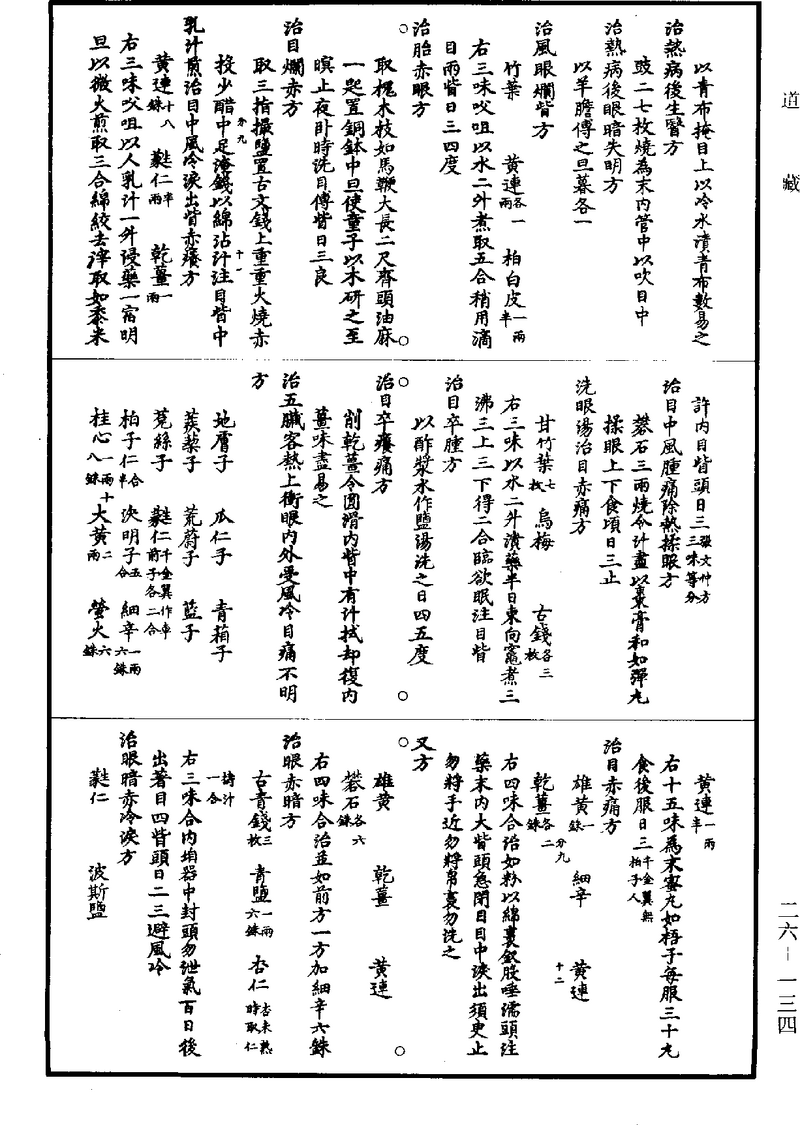 道藏
以青布掩目上以冷水漬青布數易之
治熱病後生瞖方
豉二七枚燒為末内管中以吹目中
治熱病後眼暗失明方
以羊膽傅之旦暮各一
治風眼爛眥方
竹葉 黃連各一兩 柏白皮一兩半
右三味㕮咀以水二升煮取五合稍用滴
目兩眥日三四度
治胎赤眼方
取槐木枝如馬鞭大長二尺齊頭油麻
一匙置銅鉢中旦使童子以木研之至
暝止夜卧時洗目傅眥日三良
治目爛赤方
取三指撮鹽置古文錢上重重火燒赤
投少醋中足淹錢以綿沾汁注目眥中
乳汁煎治目中風冷淚出眥赤癢方
黃連十八銖 蕤仁半兩 乾薑一兩
右三味㕮咀以人乳汁一升浸藥一宿明
旦以微火煎取三合綿絞去滓取如黍米
許内目眥頭日三張文仲方三味等分
治目中風腫痛除熱揉眼方
礬石三兩燒令汁盡以棗膏和如彈丸
揉眼上下食頃日三止
洗眼湯治目赤痛方
甘竹葉七枚 烏梅 古錢各三枚
右三味以水二升漬藥半日東向竈煮三
沸三上三下得二合臨欲眠注目眥
治目卒腫方
以酢漿水作鹽湯洗之日四五度
治目卒癢痛方
削乾薑令圓滑内眥中有汁拭却復内
薑味盡易之
治五臟客熱上衝眼内外受風冷目痛不明
方
地膚子 瓜仁子 青葙子
蒺藜子 茺蔚子 藍子
菟絲子 蕤仁千金翼作車前子各二合
柏子仁一合半 決明子五合 細辛一兩六銖
桂心一兩十八銖 大黃二兩 螢火六銖
黃連一兩半
右十五味為末蜜丸如梧子每服三十丸
食後服日三千金翼無柏子人
治目赤痛方
雄黃一銖 細辛 黃連
乾薑各二銖
右四味合治如粉以綿裹釵股唾濡頭注
藥末内大眥頭急閉目目中淚出須臾止
勿將手近勿將帛裹勿洗之
又方
雄黃 乾薑 黃連
礬石各六銖
右四味合治並如前方一方加細辛六銖
治眼赤暗方
古青錢三枚 青鹽一兩六銖 杏仁杏未熟時取仁
擣汁一合
右三味合内垍器中封頭勿泄氣百日後
出著目四眥頭日二三避風冷
治眼暗赤冷淚方
蕤仁 波斯鹽
分九
十一
分九
十二
二六－一三四